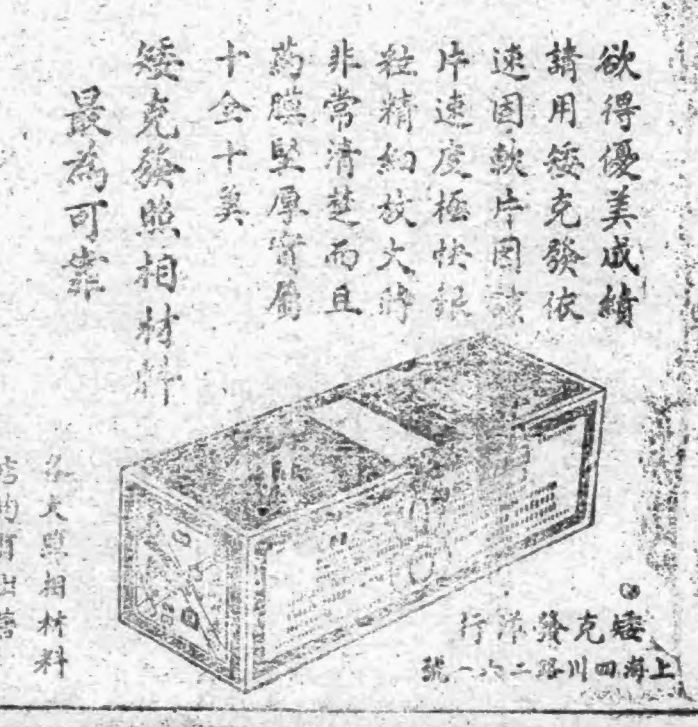 欲得優美成績
請用矮克發依
速固軟片因該
片速度極快銀
粒精細放大時
非常清楚而且
葯膜堅厚實屬
十全十美
矮克發照相材料
最為可靠
各大照相材料
店均有出售
矮克發洋行
上海四川路二六一號